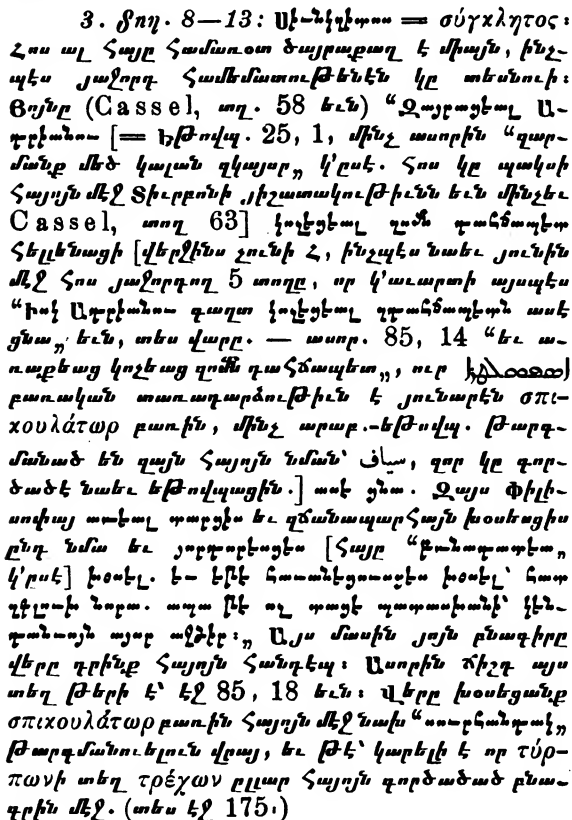 3. Յող. 8—13: Սիւնկղիտոս = σύγκλητος։
Հոս ալ Հայը համառօտ ծայրաքաղ է միայն, ինչ-
պէս յաջորդ համեմատութենէն կը տեսնուի։
Յոյնը (Cassel, տղ. 58 եւն) “Զայրացեալ Ա-
դրիանոս [= Եթովպ. 25, 1, մինչ ասորին “զար-
մանք մեծ կալան զկայսր„ կ'ըսէ. Հոս կը պակսի
Հայոյն մէջ Տիւրբոնի յիշատակութիւնն եւն մինչեւ
Cassel, տող 63] կոչեցեալ զոմն դահճապետ
Հելլենացի [վերջինս չունի Հ, ինչպէս նաեւ յունին
մէջ հոս յաջորդող 5 տողը, որ կ'աւարտի այսպէս
“Իսկ Ադրիանոս գաղտ կոչեցեալ զդահճապետն ասէ
ցնա„ եւն, տես վարը. — ասոր. 85, 14 “եւ ա-
ռաքեաց կոչեաց զոմն դահճապետ„, ուր
բառական տառադարձութիւն է յունարէն σπι-
κουλάτωρ բառին, մինչ արաբ.-եթովպ. թարգ-
մանած են զայն Հայոյն նման՝ سياف, զոր կը գոր-
ծածէ նաեւ եթովպացին.] ասէ ցնա. Զայս Փիլի-
սոփայ առեալ տարցես եւ զճանապարհայն խօսեսցիս
ընդ նմա եւ յորդորեսցես [Հայը “բանադատես„
կ'ըսէ] խօսել. եւ եթէ հաւանեցուսցես խօսել՝ հատ
զգլուխ նորա. ապա թէ ոչ տացէ պատասխանի՝ կեն-
դանւոյն այսր ածջիր։„ Այս մասին յոյն բնագիրը
վերը դրինք Հայոյն հանդէպ։ Ասորին ճիշդ այս
տեղ թերի է՝ էջ 85, 18 եւն։ Վերը խօսեցանք
σπικουλάτωρ բառին Հայոյն մէջ նախ “սուրհանդակ„
թարգմանուելուն վրայ, եւ թէ՝ կարելի է որ τύρ-
πωνի տեղ τρέχων ըլլար Հայոյն գործածած բնա-
գրին մէջ. (տես էջ 175։)